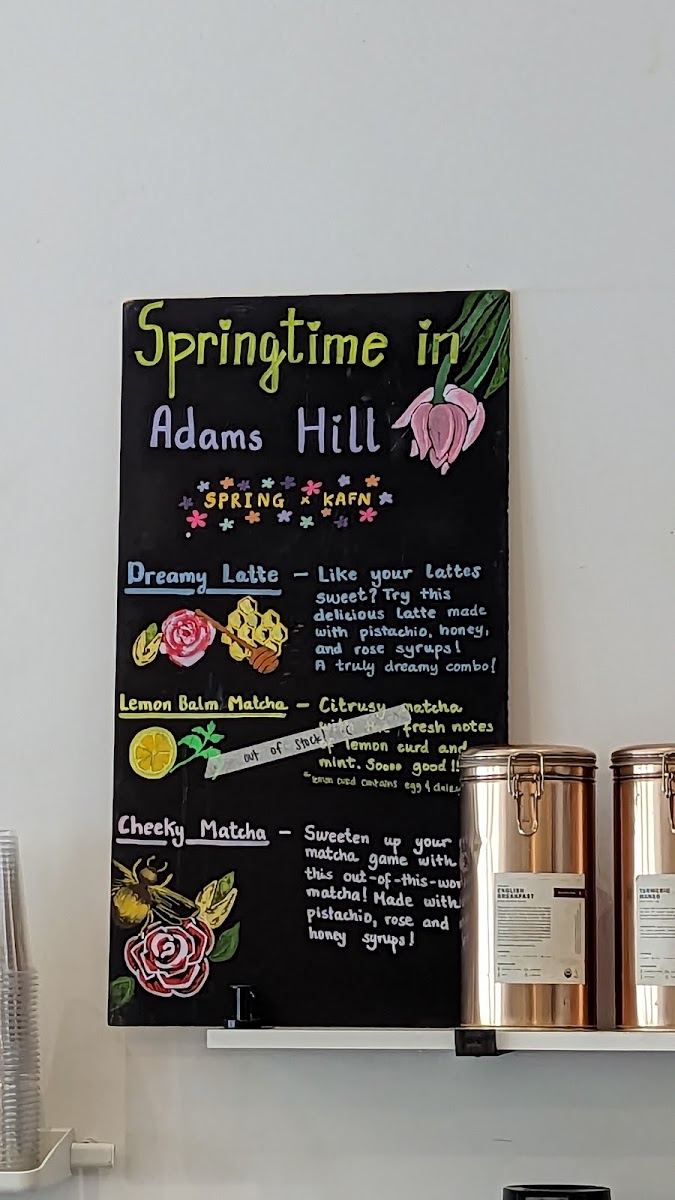 Springtime in
Adams Hill
SPRING x KAFN
Dreamy Latte – Like your lattes
sweet? Try this
delicious latte made
with pistachio, honey,
and rose syrups!
A truly dreamy combo!
Lemon Balm Matcha – Citrusy matcha
fresh notes
out of stock
lemon curd and
mint. Soooo good!!
*lemon curd contains egg &
Cheeky Matcha – Sweeten up your
matcha game with
this out-of-this-wor
matcha! Made with
pistachio, rose and
honey syrups!
ENGLISH
BREAKFAST
TURMERIC
MANGO